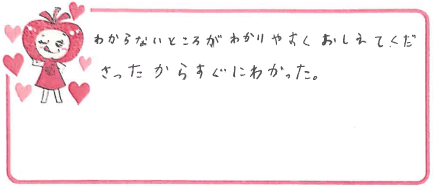 わからないところがわかりやすくおしえてくだ
さったからすぐにわかった。